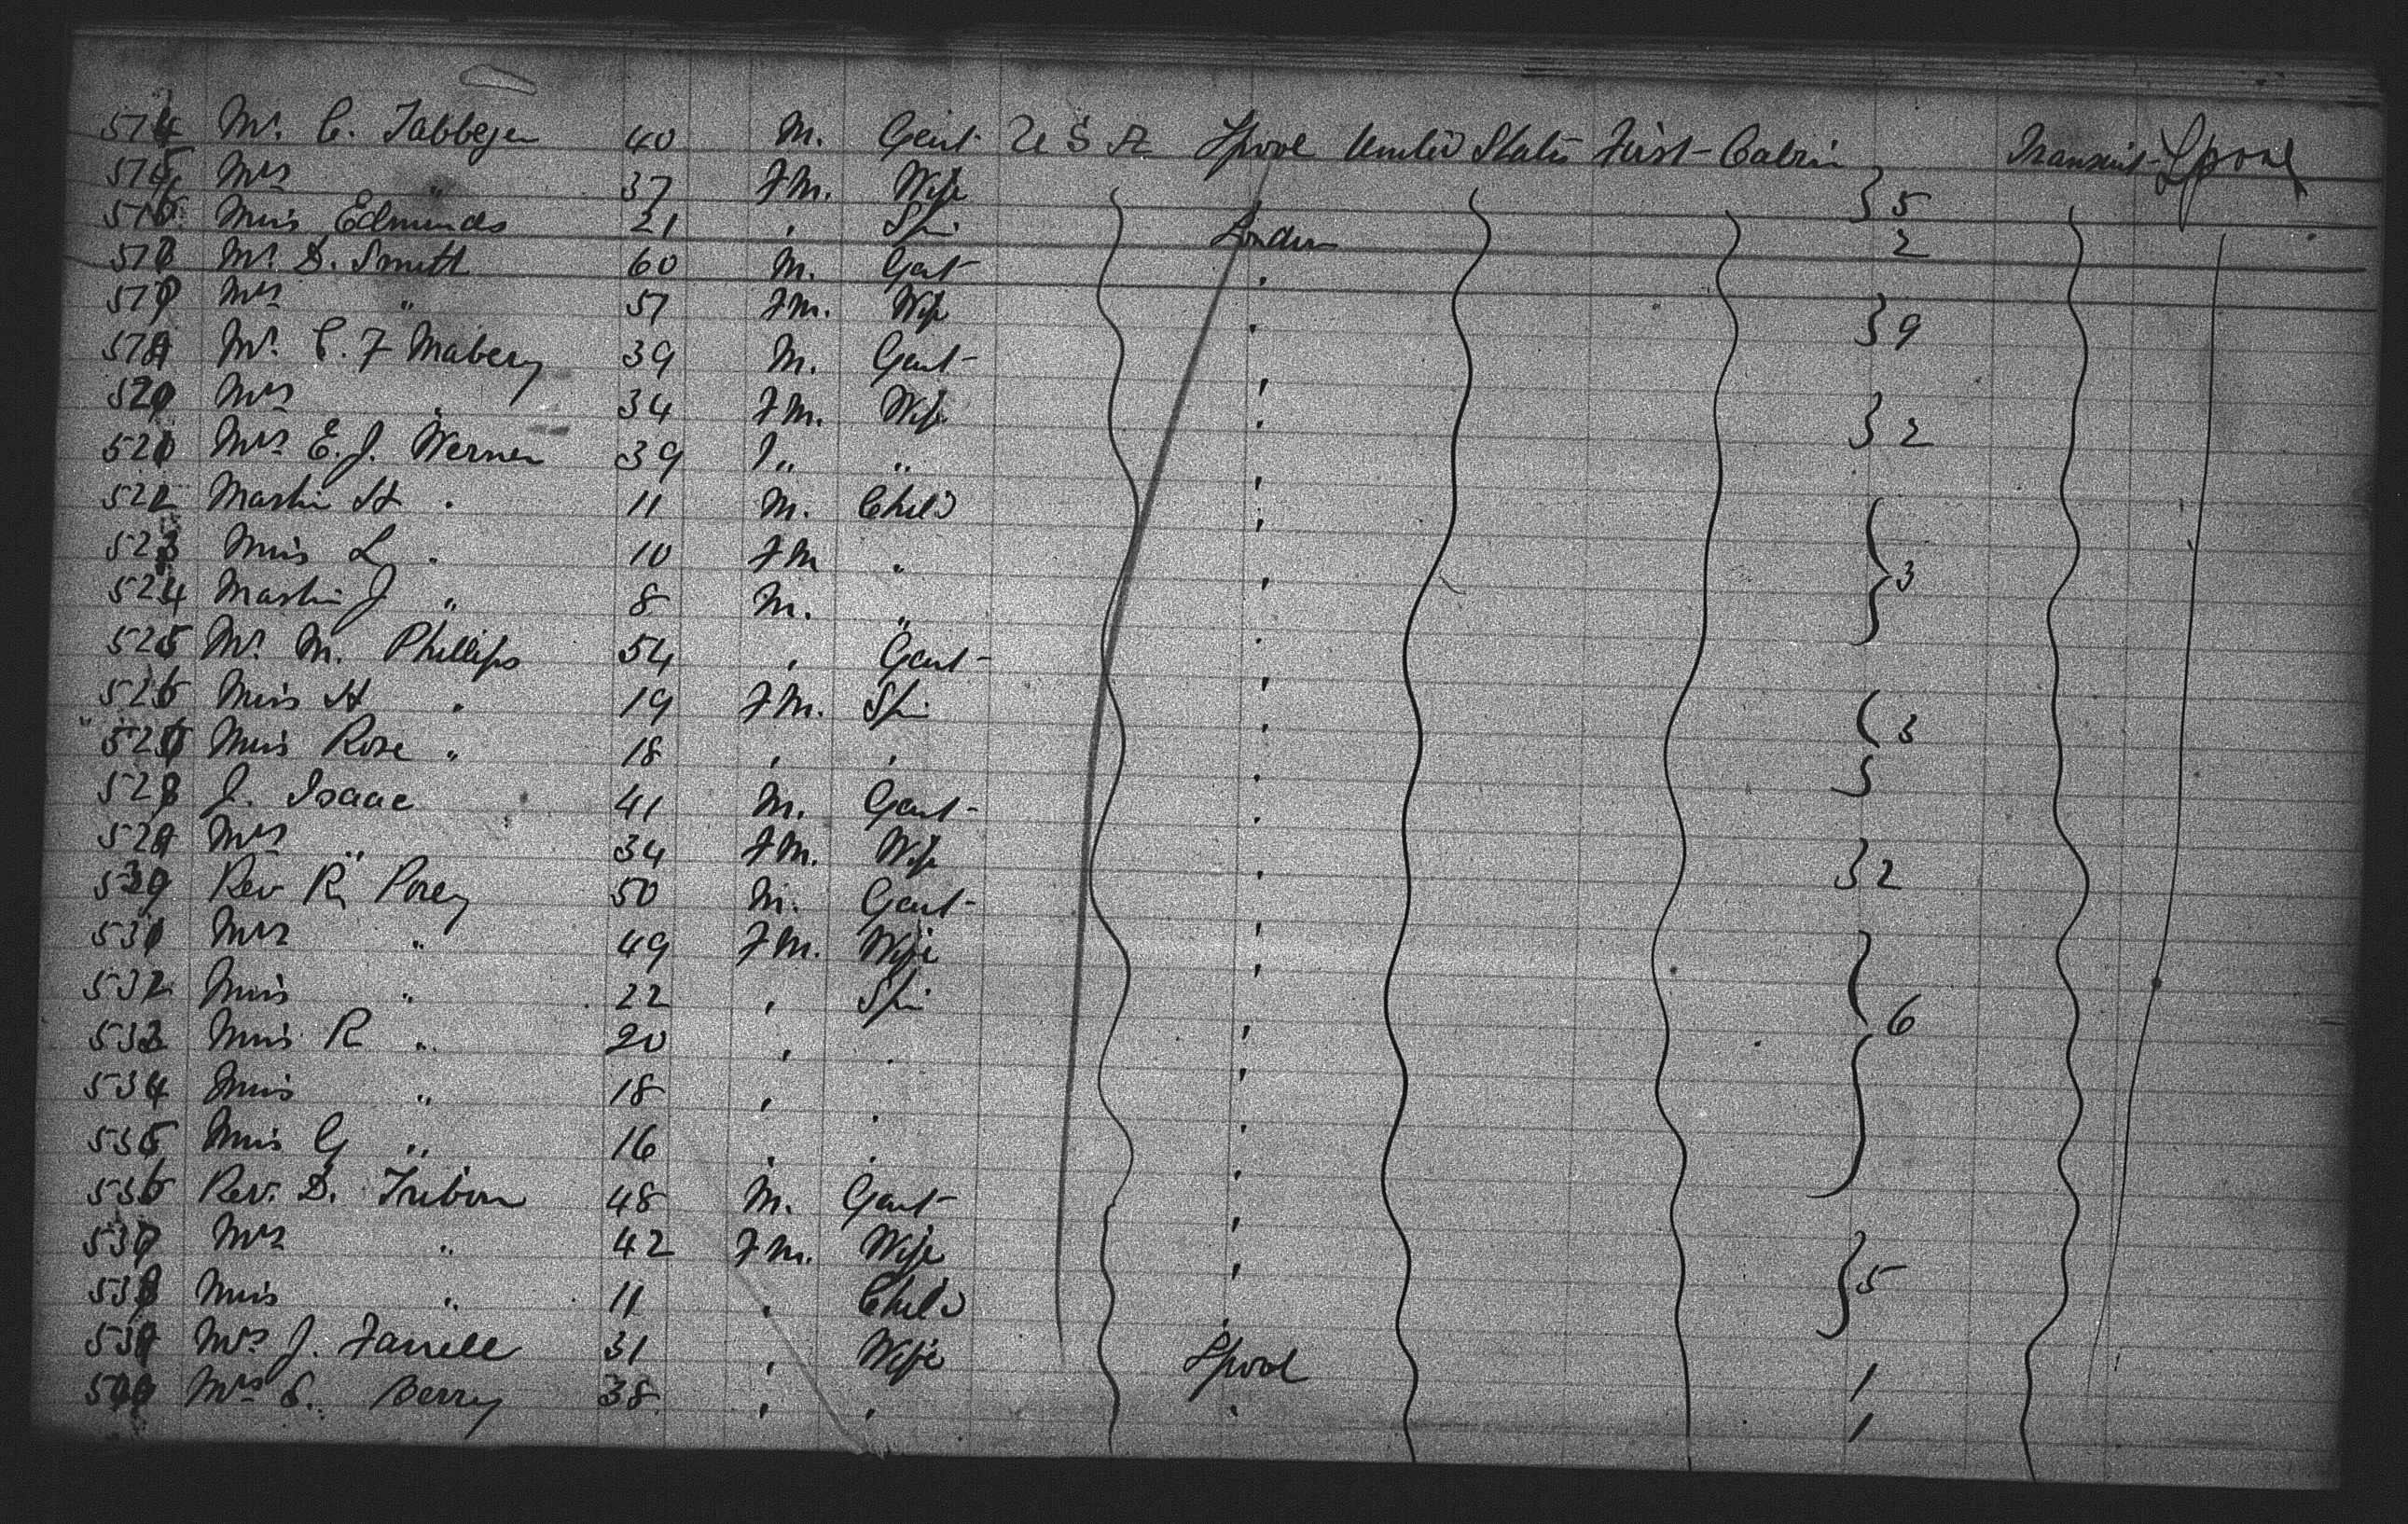 514 Mr. C. Tabbejer 40 M. Gent U S A L'pool United States First Cabin Transient L'pool
515 Mrs " 37 FM. Wife } 5
516 Miss Edmunds 21 , Spi London 2
Mr. D. Smith 60 M. Gent ,
Mrs " 57 FM. Wife , } 9
Mr. C. F Mabery 39 M. Gent ,
520 Mrs " 34 FM. Wife , } 2
521 Mrs E. J. Werner 39 F " " ,
522 Master H " 11 M. Child ,
523 Miss L " 10 FM " , } 3
524 Master J " 8 M. " ,
525 Mr. M. Phillips 54 , Gent ,
526 Miss H " 19 FM. Spi , ( 3
Miss Rose " 18 , , ,
528 J. Isaac 41 M. Gent ,
529 Mrs " 34 FM. Wife , } 2
Rev R. Posey 50 M. Gent ,
531 Mrs " 49 FM. Wife ,
532 Miss " 22 , Spi ,
533 Miss R " 20 , , , } 6
534 Miss " 18 , , ,
535 Miss G " 16 , , ,
536 Rev. D. Tribou 48 M. Gent ,
537 Mrs " 42 FM. Wife , } 5
538 Miss " 11 , Child ,
539 Mrs J. Farrell 31 , Wife L'pool 1
Mrs S. Berry 38 , , , 1